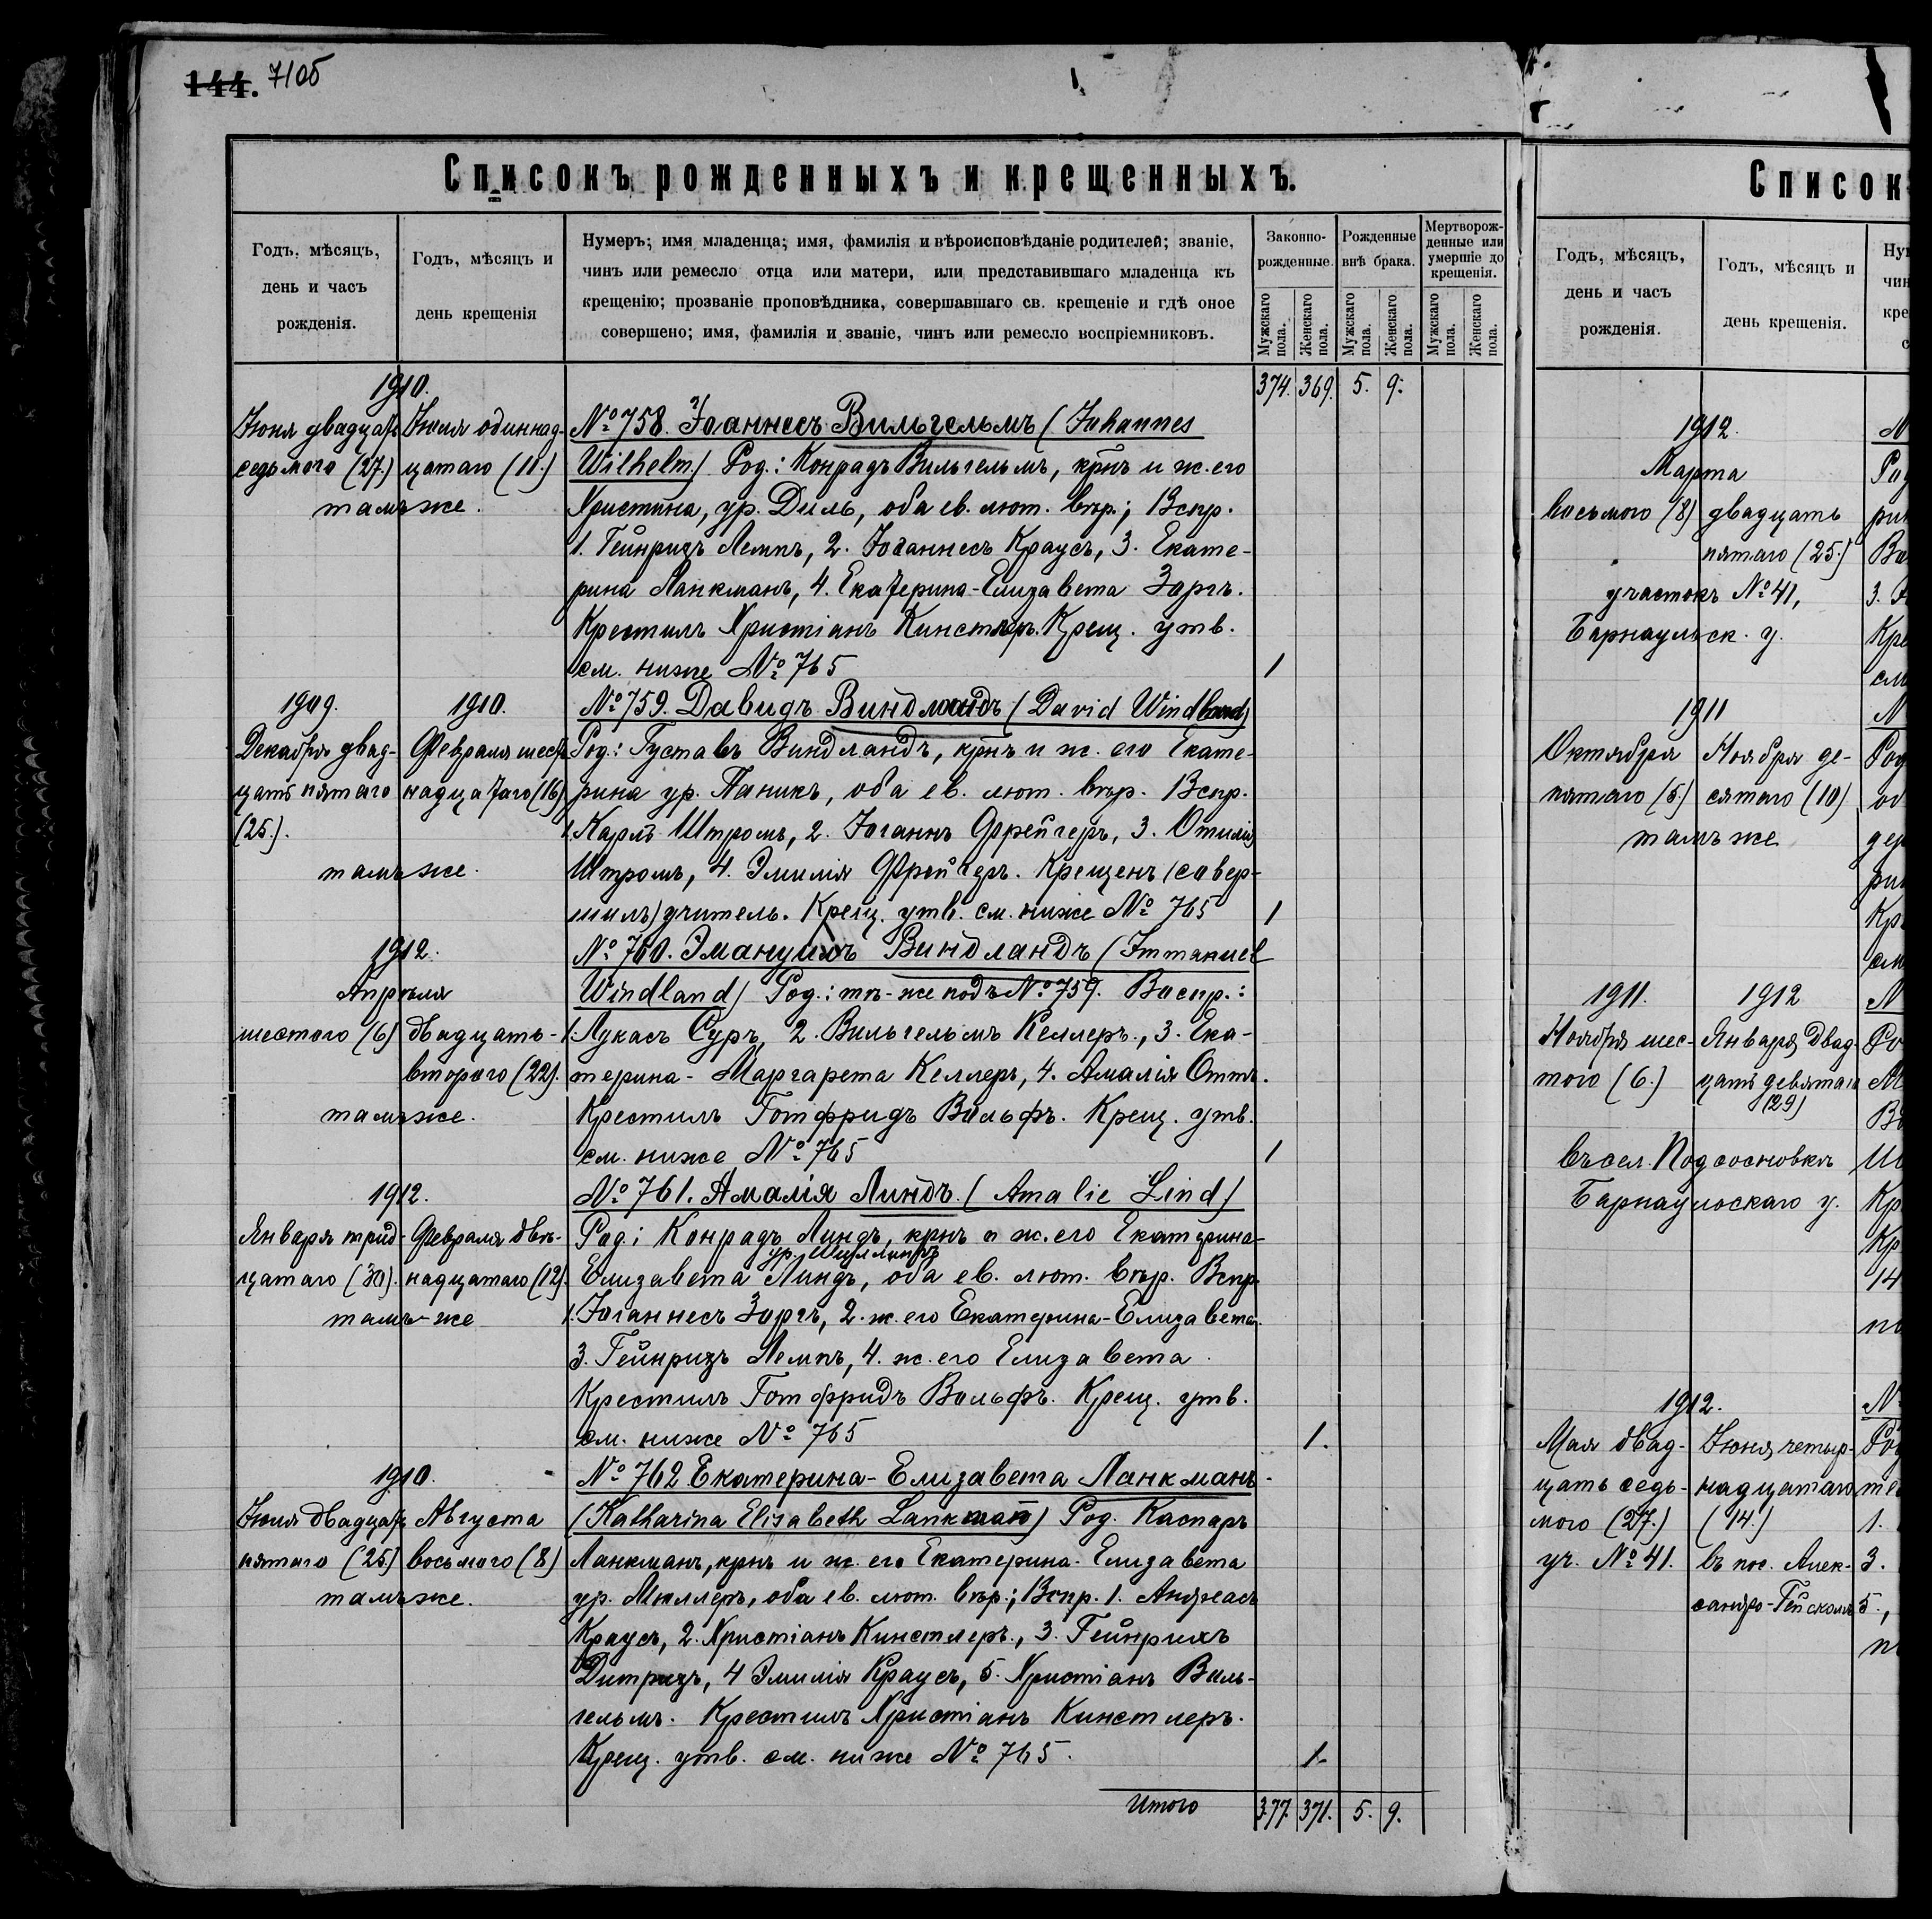 144. 71об
Списокъ рожденныхъ и крещенныхъ.
Годъ, мѣсяцъ,
день и часъ
рожденія.
Годъ, мѣсяцъ и
день крещенія
Нумеръ; имя младенца; имя, фамилія и вѣроисповѣданіе родителей; званіе,
чинъ или ремесло отца или матери, или представившаго младенца къ
крещенію; прозваніе проповѣдника, совершавшаго св. крещеніе и гдѣ оное
совершено; имя, фамилія и званіе, чинъ или ремесло воспріемниковъ.
Законно-
рожденные.
Рожденные
внѣ брака.
Мертворож-
денные или
умершіе до
крещенія.
Мужскаго пола.
Женскаго пола.
Мужскаго пола.
Женскаго пола.
Мужскаго пола.
Женскаго пола.
374. 369. 5. 9.
1910.
Іюня двадцать
седьмого (27.)
Іюля одиннад-
цатаго (11.)
тамъ же.
№ 758. Іоаннесъ Вильгельмъ (Johannes
Wilhelm) Род.: Конрадъ Вильгельмъ, крнъ и ж. его
Христина, ур. Диль, оба ев. лют. вѣр.; Вспр.
1. Гейнрихъ Лемпъ, 2. Іоганнесъ Краусъ, 3. Екате-
рина Ланкманъ, 4. Екатерина-Елизавета Зоргъ.
Крестилъ Христіанъ Кинстлеръ. Крещ. утв.
см. ниже № 765 1
1909. 1910.
Декабря двад-
цать пятаго
(25.).
Февраля шест-
надцатаго (16)
тамъ же.
№ 759. Давидъ Виндландъ (David Windland)
Род.: Густавъ Виндландъ, крнъ и ж. его Екате-
рина ур. Паникъ, оба ев. лют. вѣр. Вспр.
1. Карлъ Штромъ, 2. Іоганнъ Фрейгеръ, 3. Отилія
Штромъ, 4. Эмилія Фрейгеръ. Крещенъ (совер-
шилъ) учитель. Крещ. утв. см. ниже № 765 1
1912.
Апрѣля
шестого (6)
двадцать-
второго (22).
тамъ же.
№ 760. Эмануилъ Виндландъ (Immanuel
Windland) Род.: тѣ-же подъ № 759. Воспр.:
1. Лукасъ Суръ, 2. Вильгельмъ Келлеръ, 3. Ека-
терина-Маргарета Келлеръ, 4. Амалія Оттъ.
Крестилъ Готфридъ Вольфъ. Крещ. утв.
см. ниже № 765 1
1912.
Января трид-
цатаго (30).
Февраля двѣ-
надцатаго (12).
тамъ-же
№ 761. Амалія Линдъ. (Amalie Lind)
Род: Конрадъ Линдъ, крнъ и ж. его Екатерина-
Елизавета Линдъ, оба ев. лют. вѣр. Вспр.
1. Іоганнесъ Зоргъ, 2. ж. его Екатерина-Елизавета.
3. Гейнрихъ Лемпъ, 4. ж. его Елизавета.
Крестилъ Готфридъ Вольфъ. Крещ. утв.
см. ниже № 765 1.
1910.
Іюля двадцать
пятаго (25)
Августа
восьмого (8)
тамъ же.
№ 762 Екатерина-Елизавета Ланкманъ
(Katharina Elisabeth Lankmann) Род. Каспаръ
Ланкманъ, крнъ и ж. его Екатерина-Елизавета
ур. Мюллеръ, оба ев. лют. вѣр.; Вспр. 1. Андреасъ
Краусъ, 2. Христіанъ Кинстлеръ, 3. Гейнрихъ
Дитрихъ, 4 Эмилія Краусъ, 5. Христіанъ Виль-
гельмъ. Крестилъ Христіанъ Кинстлеръ.
Крещ. утв. см. ниже № 765. 1.
Итого 377. 371. 5. 9.
Список
Годъ, мѣсяцъ,
день и часъ
рожденія.
Годъ, мѣсяцъ и
день крещенія.
1912.
Марта
восьмого (8)
двадцать
пятаго (25.)
участокъ № 41,
Барнаульск. у.
1911
Октября
пятаго (5.)
Ноября де-
сятаго (10)
тамъ же
1911. 1912
Ноября шес-
того (6.)
Января двад-
цать девятаго
(29)
въ сел. Подсосновкѣ
Барнаульскаго у.
1912.
Мая двад-
цать седь-
мого (27.)
уч. № 41.
Іюня четыр-
надцатаго
(14.)
въ пос. Алек-
сандро-Гейскомъ